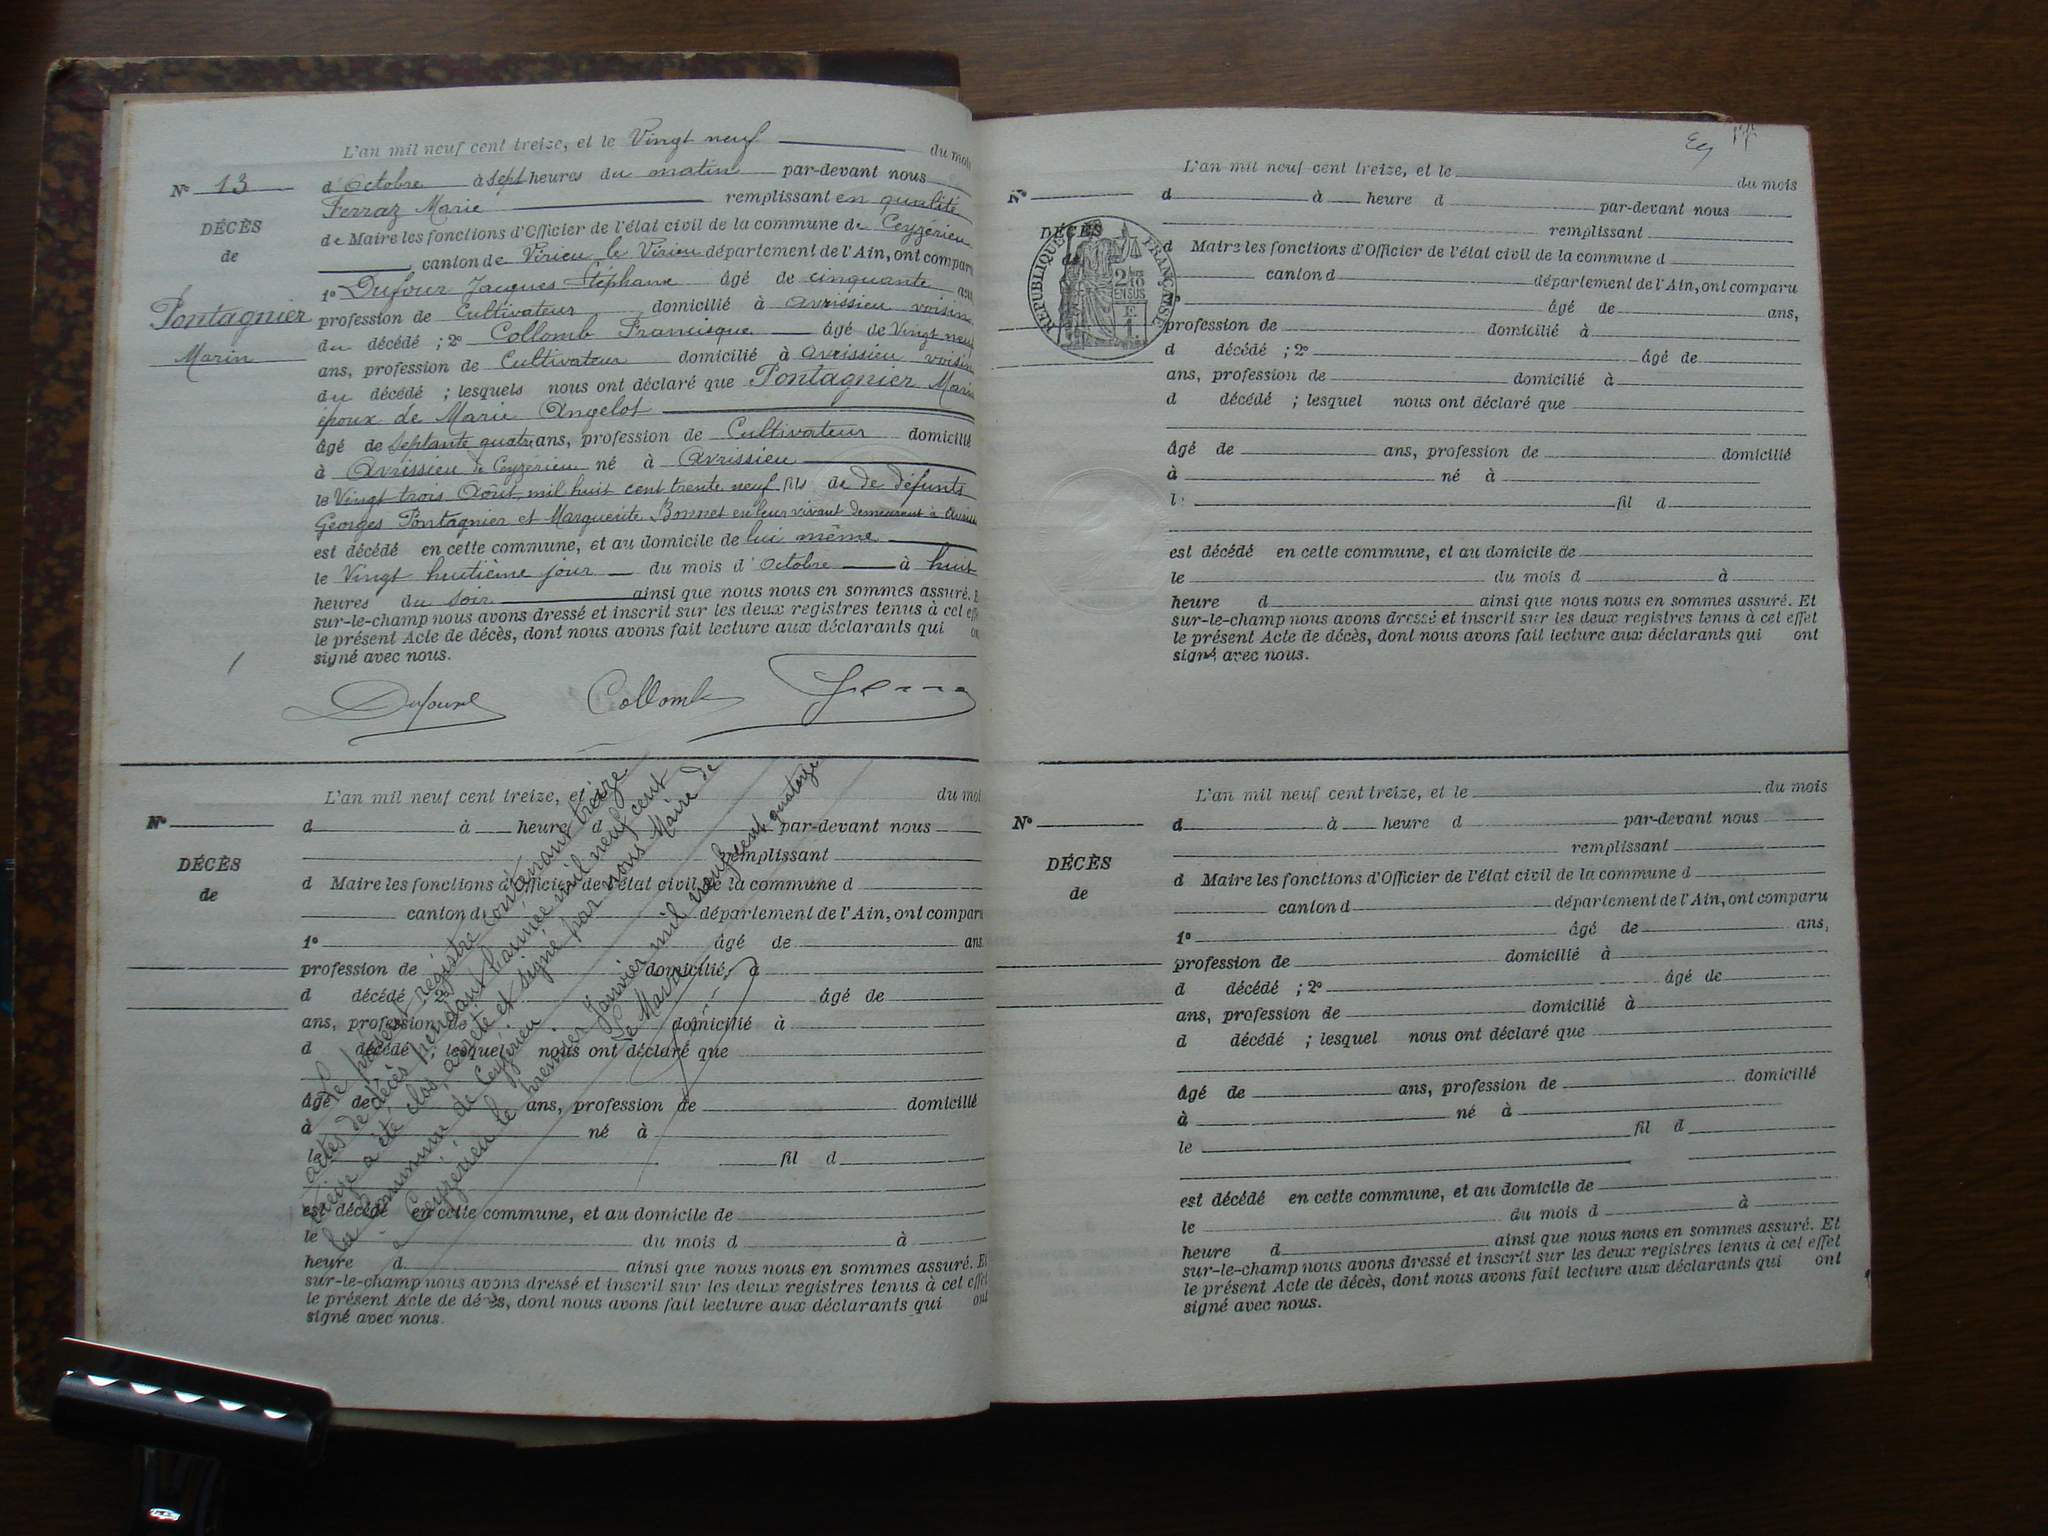 L'an mil neuf cent treize, et le Vingt neuf du mois
N° 13
d'Octobre à sept heures du matin par-devant nous
Ferraz Marie remplissant en qualité
DÉCÈS
de
Pontagnier
Marin
de Maire les fonctions d'Officier de l'état civil de la commune de Ceyzérieu
canton de Virieu le Virieu département de l'Ain, ont comparu
1° Dufour Jacques Stéphane âgé de cinquante ans
profession de Cultivateur domicilié à Avrissieu voisin
du décédé ; 2° Collomb Francisque âgé de Vingt neuf
ans, profession de Cultivateur domicilié à Avrissieu voisin
du décédé ; lesquels nous ont déclaré que Pontagnier Marin
époux de Marie Angelot
âgé de septante quatre ans, profession de Cultivateur domicilié
à Avrissieu de Ceyzérieu né à Avrissieu
le Vingt trois Août mil huit cent trente neuf fils de de défunts
Georges Pontagnier et Marguerite Bonnet en leur vivant demeurant à
est décédé en cette commune, et au domicile de lui même
le Vingt huitième jour du mois d'Octobre à huit
heures du soir ainsi que nous nous en sommes assuré. E
sur-le-champ nous avons dressé et inscrit sur les deux registres tenus à cet effe
le présent Acte de décès, dont nous avons fait lecture aux déclarants qui on
signé avec nous.
Dufour Collomb
L'an mil neuf cent treize, et du moi
N°
d à heure d par-devant nous
remplissant
DÉCÈS
de
d Maire les fonctions d'Officier de l'état civil de la commune d
canton d département de l'Ain, ont comparu
1° âgé de ans
profession de domicilié à
d décédé âgé de
ans, profession de domicilié à
d décédé ; lesquel nous ont déclaré que
âgé de ans, profession de domicilié
à né à
le fil d
est décédé en cette commune, et au domicile de
le du mois d à
heure d ainsi que nous nous en sommes assuré. Et
sur-le-champ nous avons dressé et inscrit sur les deux registres tenus à cet effet
le présent Acte de décès, dont nous avons fait lecture aux déclarants qui ont
signé avec nous.
Le présent régistre contenant treize
actes de décès pendant l'année mil neuf cent
treize a été clos, arrêté et signé par nous Maire de
la Commune de Ceyzérieu
à Ceyzérieu le premier Janvier mil neuf cent quatorze
Le Maire
L'an mil neuf cent treize, et le du mois
N°
d à heure d par-devant nous
remplissant
DÉCÈS
RÉPUBLIQUE FRANÇAISE
d Maire les fonctions d'Officier de l'état civil de la commune d
canton d département de l'Ain, ont comparu
âgé de ans,
profession de domicilié à
d décédé ; 2° âgé de
ans, profession de domicilié à
d décédé ; lesquel nous ont déclaré que
âgé de ans, profession de domicilié
à né à
l fil d
est décédé en cette commune, et au domicile de
le du mois d à
heure d ainsi que nous nous en sommes assuré. Et
sur-le-champ nous avons dressé et inscrit sur les deux registres tenus à cet effet
le présent Acte de décès, dont nous avons fait lecture aux déclarants qui ont
signé avec nous.
L'an mil neuf cent treize, et le du mois
N°
d à heure d par-devant nous
remplissant
DÉCÈS
de
d Maire les fonctions d'Officier de l'état civil de la commune d
canton d département de l'Ain, ont comparu
1° âgé de ans,
profession de domicilié à
d décédé ; 2° âgé de
ans, profession de domicilié à
d décédé ; lesquel nous ont déclaré que
âgé de ans, profession de domicilié
à né à
le fil d
est décédé en cette commune, et au domicile de
le du mois d à
heure d ainsi que nous nous en sommes assuré. Et
sur-le-champ nous avons dressé et inscrit sur les deux registres tenus à cet effet
le présent Acte de décès, dont nous avons fait lecture aux déclarants qui ont
signé avec nous.